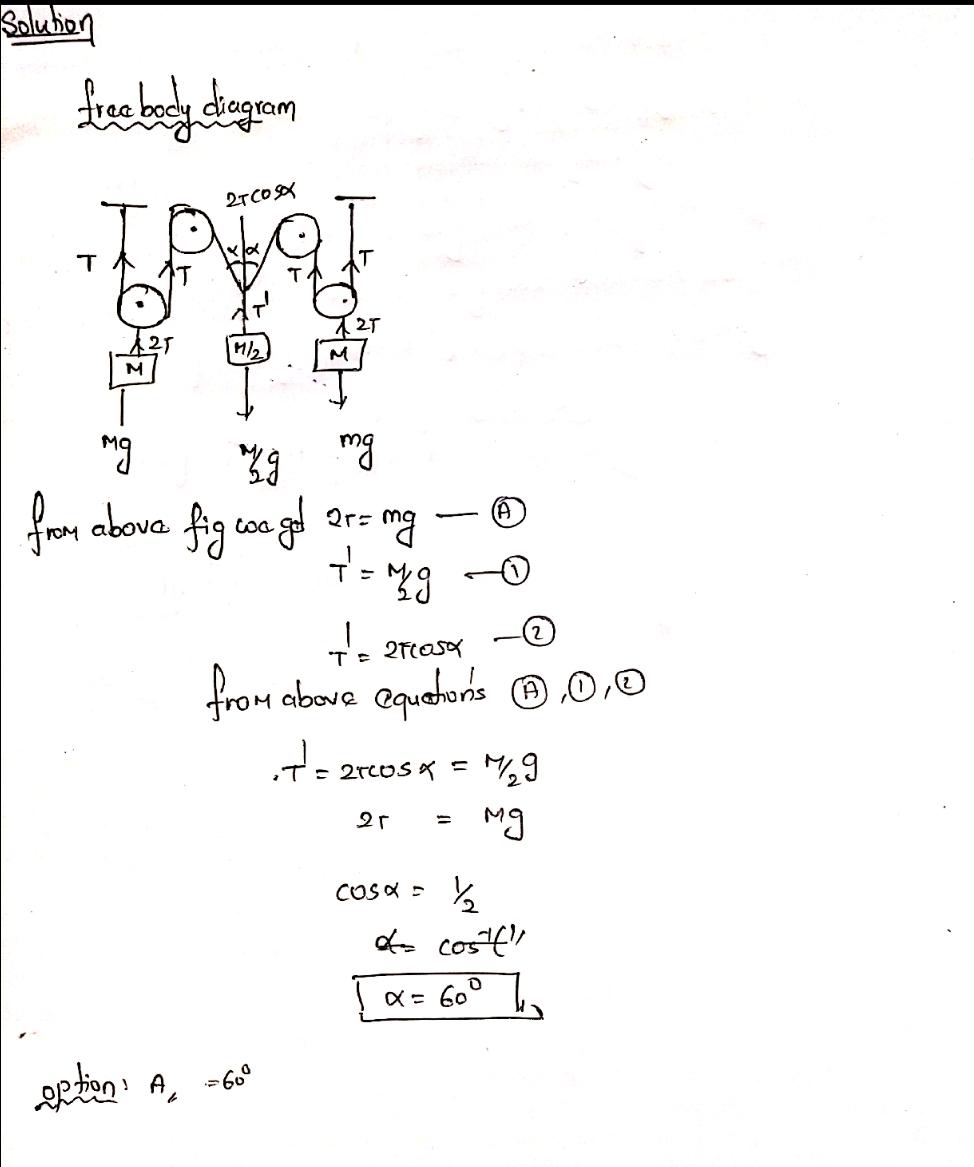 Solution
free body diagram
2T cosα
α α
T T T T
T'
2T M/2 2T
M M
Mg M/2g mg
from above fig we get 2T = mg — Ⓐ
T' = M/2 g — ①
T' = 2Tcosα — ②
from above equations Ⓐ, ①, ②
T' = 2Tcosα = M/2 g
2T = Mg
cosα = 1/2
α = 60°
option: A, = 60°